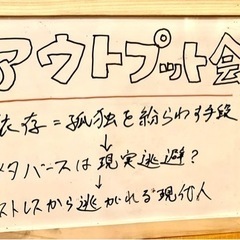 アウトプット会
依存=孤独を紛らわす手段
↓
メタバースは現実逃避?
↓
ストレスから逃がれる現代人